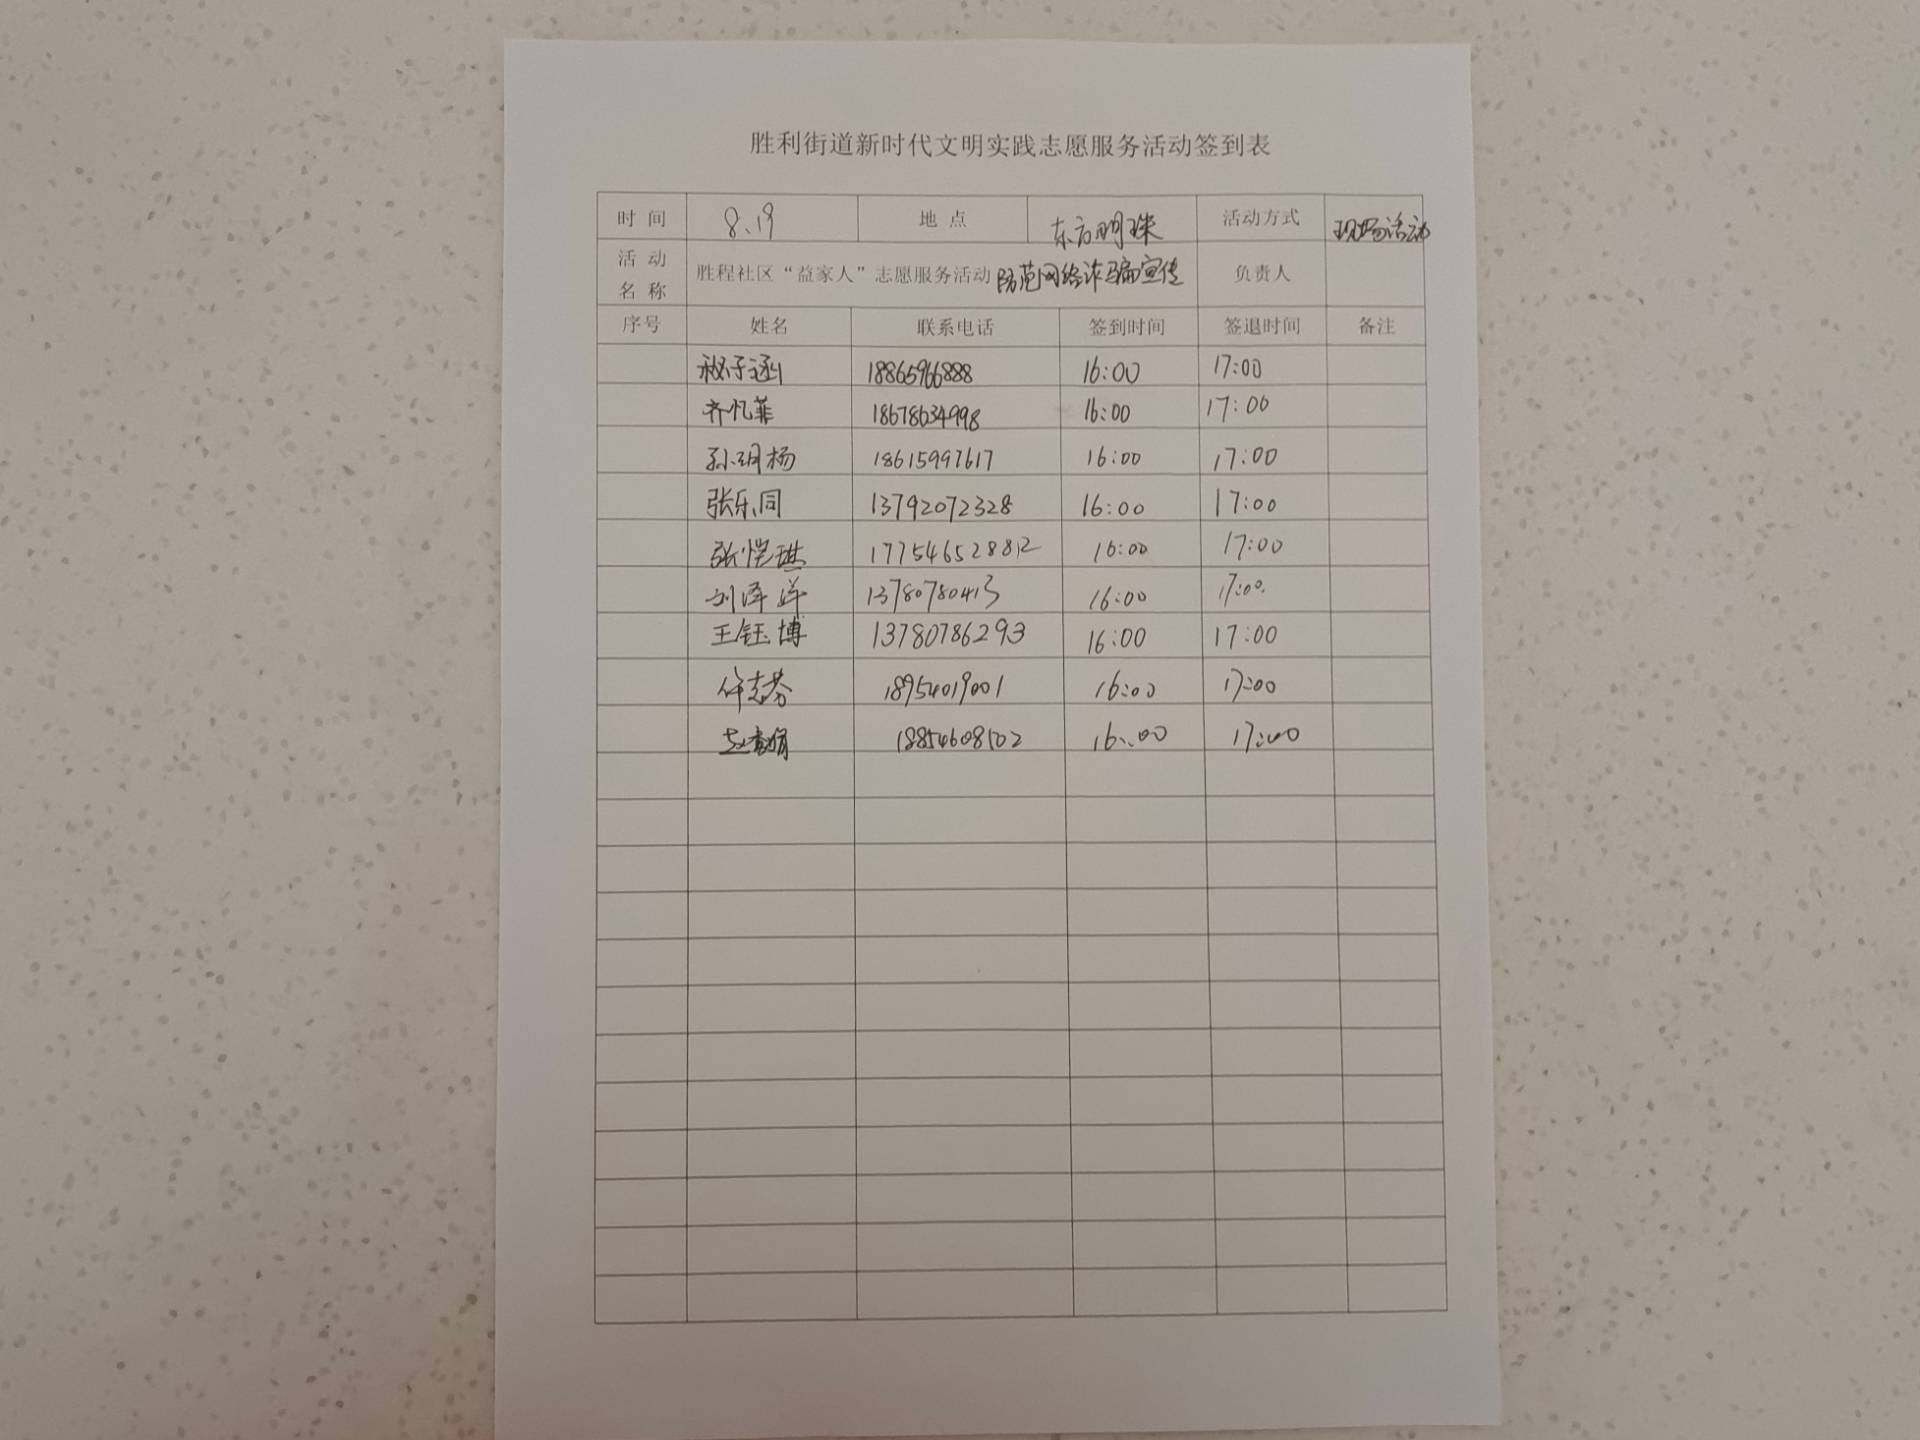 胜利街道新时代文明实践志愿服务活动签到表
时间 8.19 地点 东方明珠 活动方式 现场活动
活动名称 胜程社区“益家人”志愿服务活动 防范网络诈骗宣传 负责人
序号 姓名 联系电话 签到时间 签退时间 备注
子涵 18865966888 16:00 17:00
齐忆菲 18678634998 16:00 17:00
孙玥杨 18615997617 16:00 17:00
张乐同 13792072328 16:00 17:00
张恺琪 16:00 17:00
刘泽洋 13780780413 16:00 17:00
王钰博 13780786293 16:00 17:00
许志芬 18954019001 16:00 17:00
18854608502 16:00 17:00